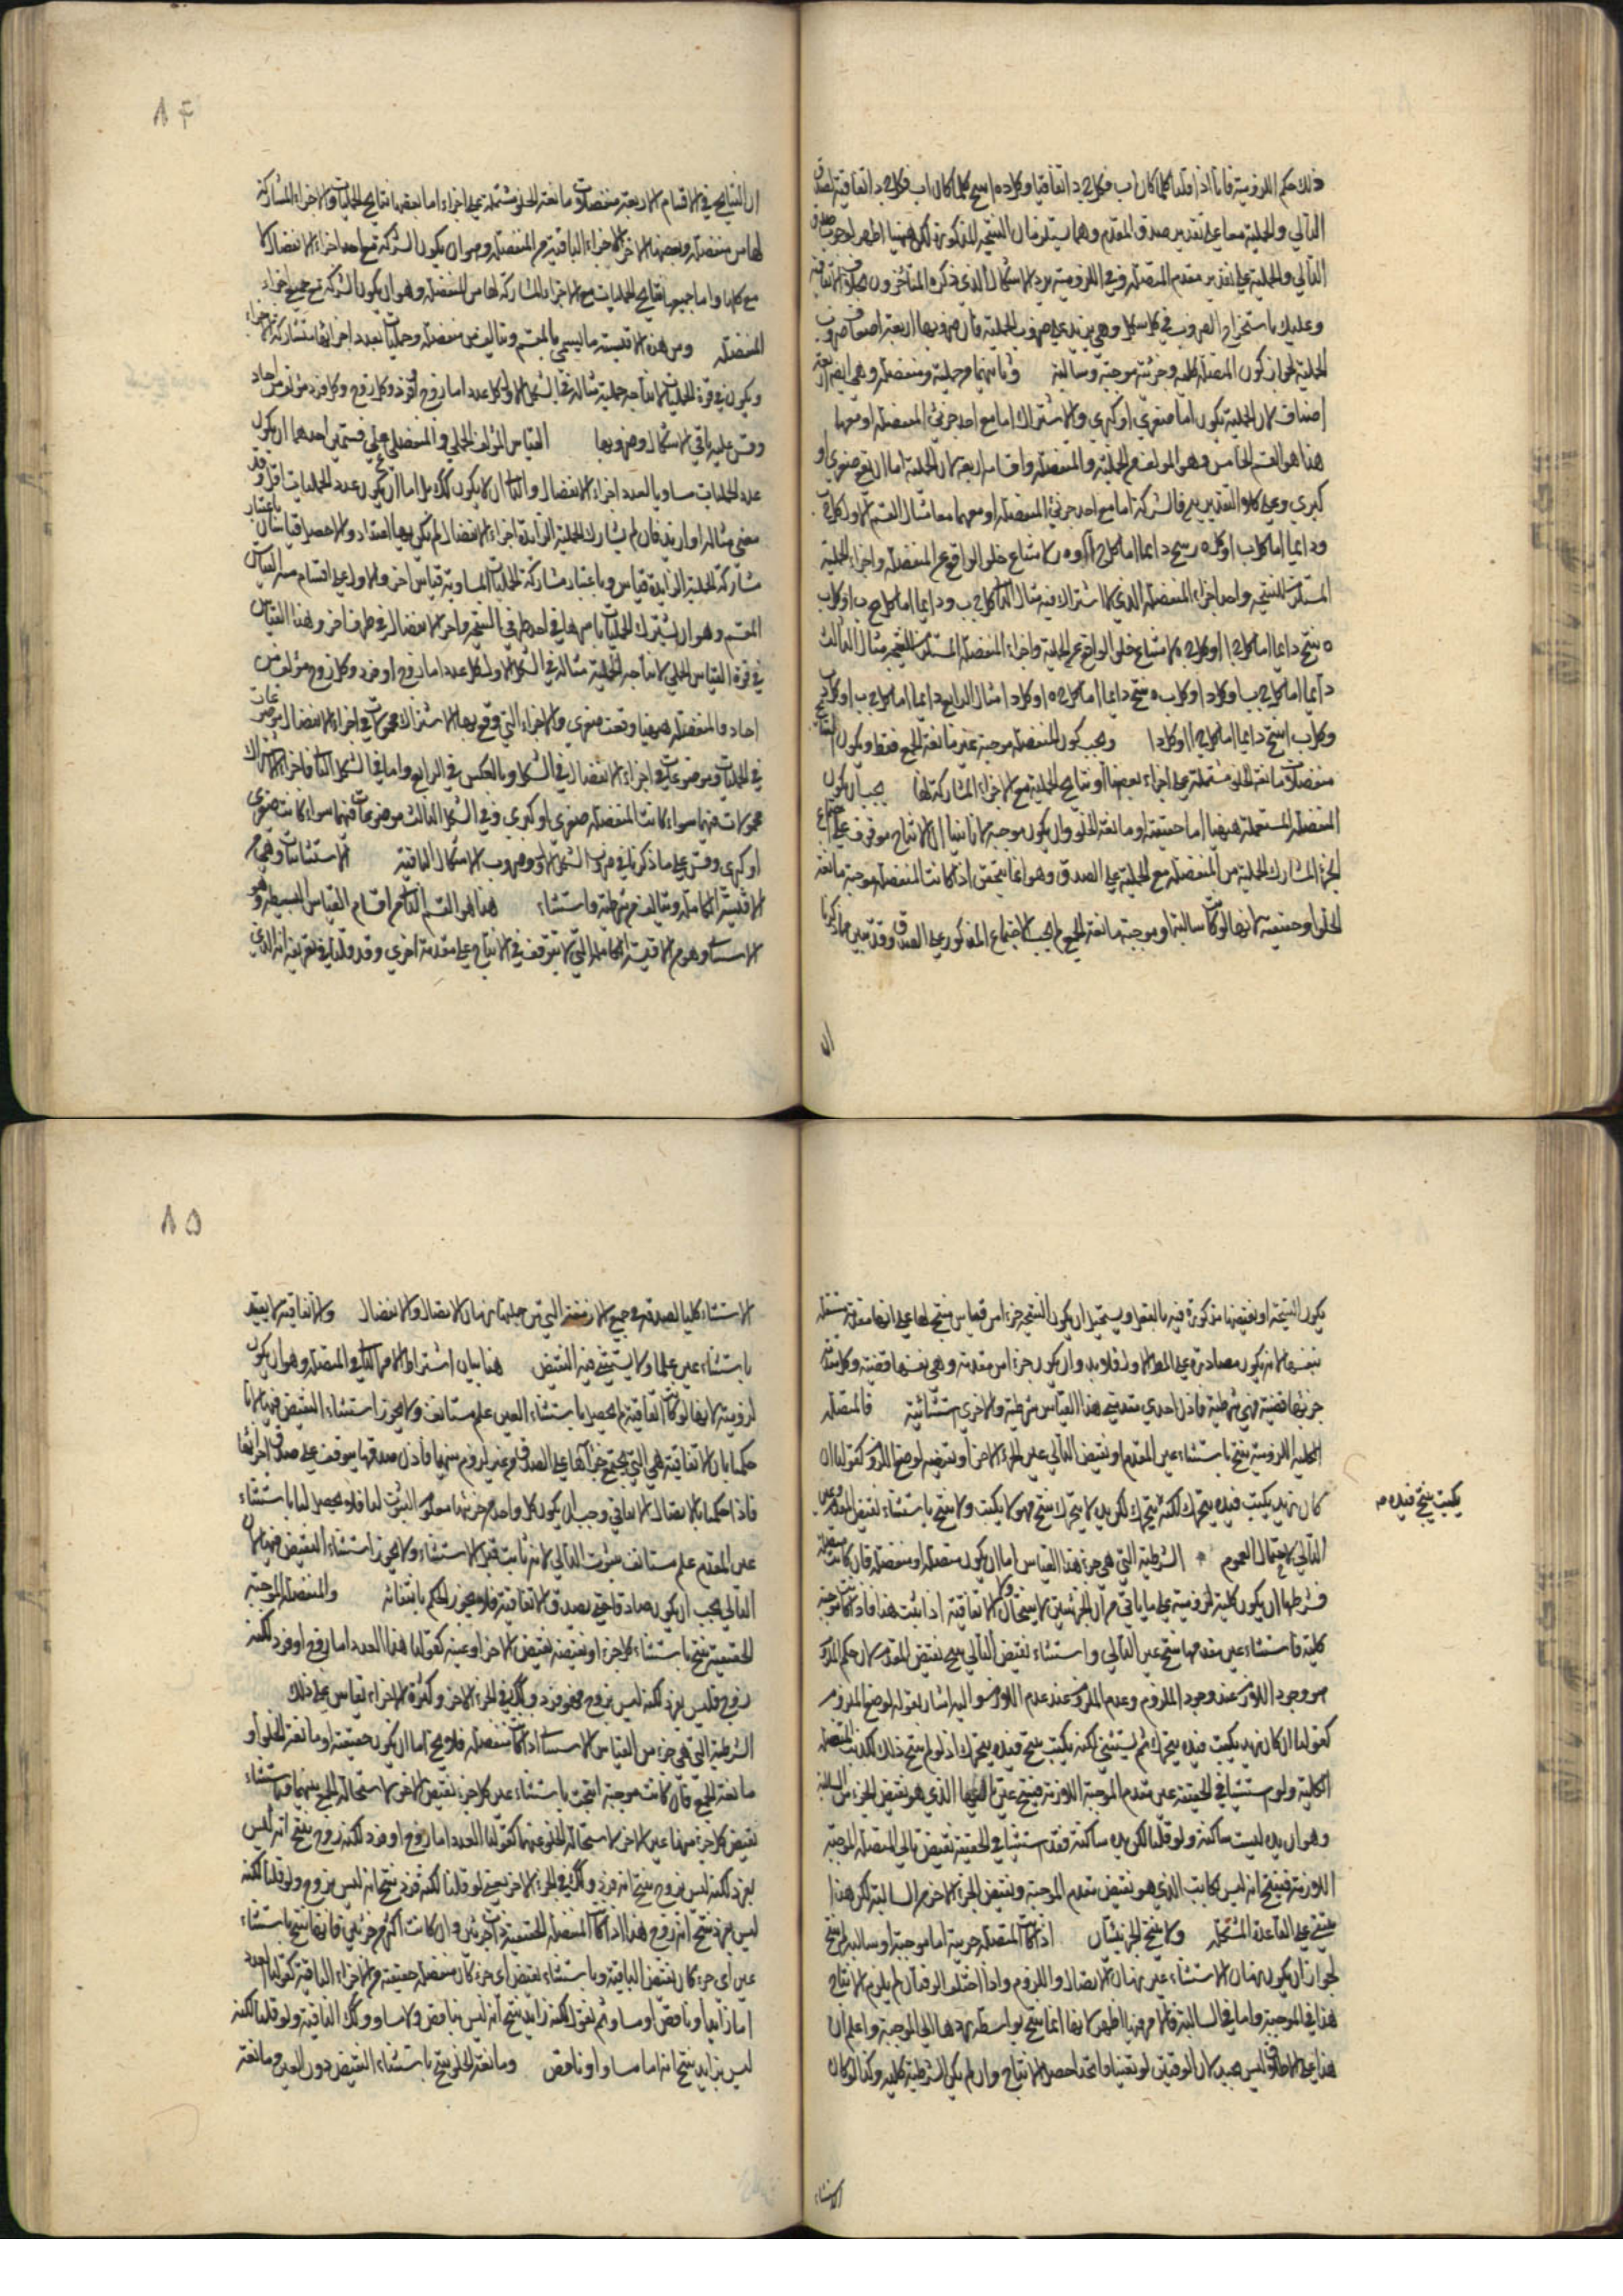 ذلك حكم اللزومية فانا اذا قلنا كلما كان اب فكل ج د اتفاقيا وكل د ه انتج كلما كان اب فكل ج ه اتفاقية لصدق
التالي والحملية معا على تقدير صدق المقدم وهما يستلزمان النتيجة المذكورة لكن ههنا اظهر لوجوب صدق
التالي والحملية على تقدير مقدم المتصلة وفي اللزومية يرد الاشكال الذي ذكره المتأخرون بخلاف الاتفاقية
وعليك باستخراج الضروب في كل شكل وهي يزيد على ضروب الحملية فان ضروبها اربعة اضعاف ضروب
الحملية لجواز كون المتصلة كلية وجزئية موجبة وسالبة وثانيهما من حملية ومنفصلة وهي ايضا اربعة
اصناف لان الحملية يكون اما صغرى او كبرى والاشتراك اما مع احد جزئي المنفصلة او معهما
هذا هو القسم الخامس وهو المولف من الحملية والمنفصلة واقسامه اربعة لان الحملية اما ان تقع صغرى او
كبرى وعلى كلا التقديرين فالشركة اما مع احد جزئي المنفصلة او معهما معا مثال القسم الاول كل ج ب
ودايما اما كل ب ا او كل ه ر ينتج دايما اما كل ج ا او ه ر لامتناع خلو الواقع عن المنفصلة واجزاء الحملية
المستلزمة للنتيجة واحد اجزاء المنفصلة الذي لا اشتراك فيه مثال الثاني كل ج ب ودايما اما كل ب ا او كل ب
ه ينتج دايما اما كل ج ا او كل ج ه لامتناع خلو الواقع عن الحملية واجزاء المنفصلة المستلزمة للنتيجة مثال الثالث
دايما اما كل ج ب او كل د ا وكل ب ه ينتج دايما اما كل ج ه او كل د ا مثال الرابع دايما اما كل ج ب او كل د ب
وكل ب ا ينتج دايما اما كل ج ا او كل د ا ويجب كون المنفصلة موجبة غير مانعة الجمع فقط ويكون النتايج
منفصلات مانعة الخلو مشتملة على اجزاء بعضها او نتايج الحملية مع الاجزاء المشاركة لها يجب ان يكون
المنفصلة المستعملة ههنا اما حقيقية او مانعة الخلو وان يكون موجبة لانا نبينا ان الانتاج موقوف على اجتماع
الجزء المشارك للحملية من المنفصلة مع الحملية على الصدق وهو انما يتحقق اذا كانت المنفصلة موجبة مانعة
الخلو او حقيقية لانها لو كانت سالبة او موجبة مانعة الجمع لم يجب الاجتماع المذكور على الصدق وقد تبين مما ذكرنا
ان
٨٤
ان النتايج في الاقسام الاربعة منفصلات مانعة الخلو مشتملة على اجزاء اما بعضها نتايج الحمليات والاجزاء المشاركة
لها من منفصلة وبعضها الاخر الاجزاء الباقية من المنفصلة وهو ان يكون الشركة مع احد اجزاء الانفصال لا
مع كلها واما جميعها نتايج الحمليات مع الاجزاء المشاركة لها من المنفصلة وهو ان يكون الشركة مع جميع اجزاء
المنفصلة ومن هذه الاقيسة ما يسمى بالمقسم ويتالف من منفصلة وحمليات بعدد اجزائها متشاركة الاجزاء
ويكون في قوة الحمليات لانتاجه حملية مثاله في الشكل الاول كل عدد اما زوج او فرد وكل زوج وكل فرد مؤلف من احاد
وقس عليه باقي الاشكال وضروبها القياس المؤلف الحملي والمنفصل على قسمين احدهما ان يكون
عدد الحمليات مساويا لعدد اجزاء الانفصال والثاني ان لا يكون كذلك بل اما ان يكون عدد الحمليات اقل وقد
مضى مثاله او ازيد فان لم يشارك الحملية الزايدة اجزاء الانفصال لم يكن بها اعتداد والا حصل قياسان باعتبار
مشاركة الحملية الزايدة قياس وباعتبار مشاركة الحمليات المساوية قياس اخر والاول على اقسام منه القياس
المقسم وهو ان يشترك الحمليات باسرها في احد طرفي النتيجة واجزاء الانفصال في طرف اخر وهذا القياس
في قوة القياس الحملي لانتاجه الحملية مثاله في الشكل الاول كل عدد اما زوج او فرد وكل زوج مؤلف من
احاد فالمنفصلة ههنا وقعت صغرى والاجزاء التي وقع بها الاشتراك محمولات في اجزاء الانفصال موضوعات
في الحمليات وموضوعات في اجزاء الانفصال في الشكل وبالعكس في الرابع واما في الشكل الثاني فاجزاء الاشتراك
محمولات فيهما سواء كانت المنفصلة صغرى او كبرى وفي الشكل الثالث موضوعات فيهما سواء كانت صغرى
او كبرى وقس على ما ذكرنا في ضروب الشكل الاول وضروب الاشكال الباقية الاستثنائيات وهي من
الاقيسة الكاملة ويتالف من شرطية واستثناء هذا هو القسم الثاني من اقسام القياس البسيطة وهو
الاستثنائي وهو من الاقيسة الكاملة التي لا يتوقف في الانتاج على مقدمة اخرى وقد قلنا في تعريفه انه الذي
يكون النتيجة او نقيضها مذكورة فيه بالفعل ويستحيل ان يكون النتيجة جزءا من قياس ينتج لها على انها مقدمة مستقلة
بنفسها لانه يكون مصادرة على المطلوب الاول فلا بد وان يكون جزءا من مقدمة وهي نفسها قضية وكل مقدمة
جزئها قضية فهي شرطية فاذن احدى مقدمتي هذا القياس شرطية والاخرى استثنائية فالمتصلة
الكلية اللزومية ينتج باستثناء عين المقدم او نقيض التالي عين الجزء الاخر او نقيضه لوضع اللازم كقولنا ان
كان زيد يكتب فيده يتحرك لكنه يتحرك لكن يده لا يتحرك ينتج فهو لا يكتب ولا ينتج باستثناء نقيض المقدم وعين
يكتب ينتج فيده م
التالي لاحتمال العموم الشرطية التي هي جزء هذا القياس اما ان يكون متصلة او منفصلة فان كانت متصلة
فشرطها ان يكون كلية لزومية على ما ياتي من ان الجزئيتين لا ينتجان ولا الاتفاقية اذا ثبت هذا فاذا كانت موجبة
كلية فاستثناء عين مقدمها ينتج عين التالي واستثناء نقيض التالي ينتج نقيض المقدم لان حكم اللزوم
هو وجود اللازم عند وجود الملزوم وعدم الملزوم عند عدم اللازم واليه اشار بقوله لوضع الملزوم
كقولنا ان كان زيد يكتب فيده يتحرك ثم يستثني لكنه يكتب ينتج فيده يتحرك اذ لو لم ينتج ذلك لكذبت المتصلة
الكلية ولو استثنينا في الحقيقة عين مقدم الموجبة اللازمة فينتج عين تاليها الذي هو نقيض الجزء من السالبة
وهو ان يده ليست ساكنة ولو قلنا لكن يده ساكنة فقد استثنينا في الحقيقة نقيض تالي المتصلة الموجبة
اللازمة فينتج انه ليس بكاتب الذي هو نقيض مقدم الموجبة ونقيض الجزء الاخر من السالبة لكن هذا
يبتني على القاعدة المشكلة ولا ينتج الجزئيتان اذا كانت المتصلة جزئية اما موجبة او سالبة لم ينتج
لجواز ان يكون زمان الاستثناء غير زمان الاتصال واللزوم واذا اختلف الوقتان لم يلزم الانتاج
هذا في الموجبة واما في السالبة فالامر فيها اظهر لانها انما ينتج بواسطة ردها الى الموجبة واعلم ان
هذا على الاطلاق ليس بجيد لان الوقتين لو تعينا واتحدا حصل الانتاج وان لم يكن الشرطية كلية وكذا لو كان
الاستثناء
٨٥
الاستثناء كليا لصدقه في جميع الازمنة التي من جملتها زمان الاتصال والانفصال والاتفاقية لا يفيد
باستثناء عين علما ولا يستثنى فيه النقيض هذا بيان اشتراط الامر الثاني في المتصلة وهو ان يكون
لزومية لانها لو كانت اتفاقية لم يحصل باستثناء العين علم مستانف ولا يجوز استثناء النقيض فيها لانا
حكمنا بان الاتفاقية هي التي يجتمع جزآها على الصدق من غير لزوم بينهما فاذن صدقها يتوقف على صدق اجزائها
فاذا حكمنا بالاتصال الاتفاقي وجب ان يكون كل واحد من جزئيها معلوم الثبوت لنا فلا يحصل لنا باستثناء
عين المقدم علم مستانف بثبوت التالي لانه ثابت قبل الاستثناء ولا يجوز استثناء النقيض فيها لان
التالي يجب ان يكون صادقا حتى يصدق الاتفاقية فلا يجوز الحكم بانتفائه والمنفصلة الموجبة
الحقيقية ينتج باستثناء كل جزء او نقيضه نقيض الاخر او عينه كقولنا هذا العدد اما زوج او فرد لكنه
زوج فليس بفرد لكنه ليس بزوج فهو فرد وكذلك في الجزء الاخر وكثرة الاجزاء تقاس على ذلك
الشرطية التي هي جزء من القياس الاستثنائي اذا كانت منفصلة فلا يخ اما ان يكون حقيقية او مانعة الخلو او
مانعة الجمع فان كانت موجبة انتجت باستثناء عين كل جزء نقيض الاخر لاستحالة الجمع بينهما وباستثناء
نقيض كل جزء منها عين الاخر لاستحالة الخلو عنهما كقولنا العدد اما زوج او فرد لكنه زوج ينتج انه ليس
بفرد لكنه ليس بزوج ينتج انه فرد وكذلك في الجزء الاخر يعني لو قلنا لكنه فرد ينتج انه ليس بزوج ولو قلنا لكنه
ليس بفرد ينتج انه زوج هذا اذا كانت المنفصلة الحقيقية ذات جزئين وان كانت اكثر من جزئين فانها ينتج باستثناء
عين اي جزء كان نقيض الباقية وباستثناء نقيض اي جزء كان منفصلة حقيقية من الاجزاء الباقية كقولنا العدد
اما زايد او ناقص او مساو ثم نقول لكنه زايد ينتج انه ليس بناقص ولا مساو وكذلك الباقية ولو قلنا لكنه
ليس بزايد ينتج انه اما مساو او ناقص ومانعة الخلو ينتج باستثناء النقيض دون العين ومانعة